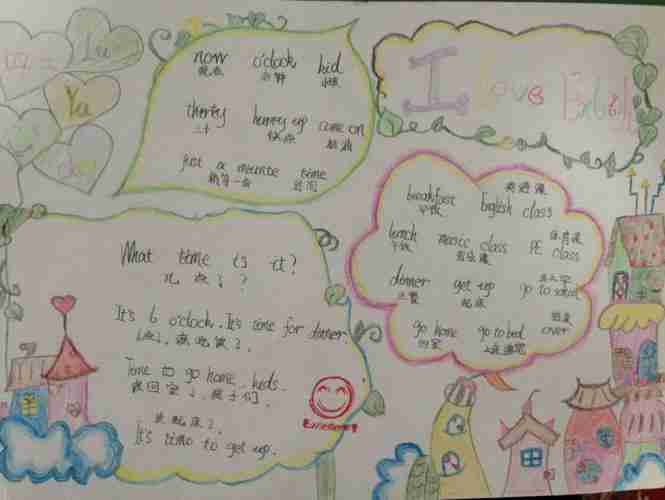 Lu
Ya
now o'clock kid
现在 点钟 小孩
thirty hurry up come on
三十 快点
just a minute time
稍等一会 时间
I Love English
What time is it?
几点了?
It's 6 o'clock. It's time for dinner.
6点了,该吃饭了。
Time to go home, kids.
该回家了,孩子们。
该起床了。
It's time to get up.
英语课
breakfast English class
早饭
体育课
lunch music class PE class
午饭 音乐课
去上学
dinner get up go to school
起床
结束
go home go to bed over
回家 上床睡觉